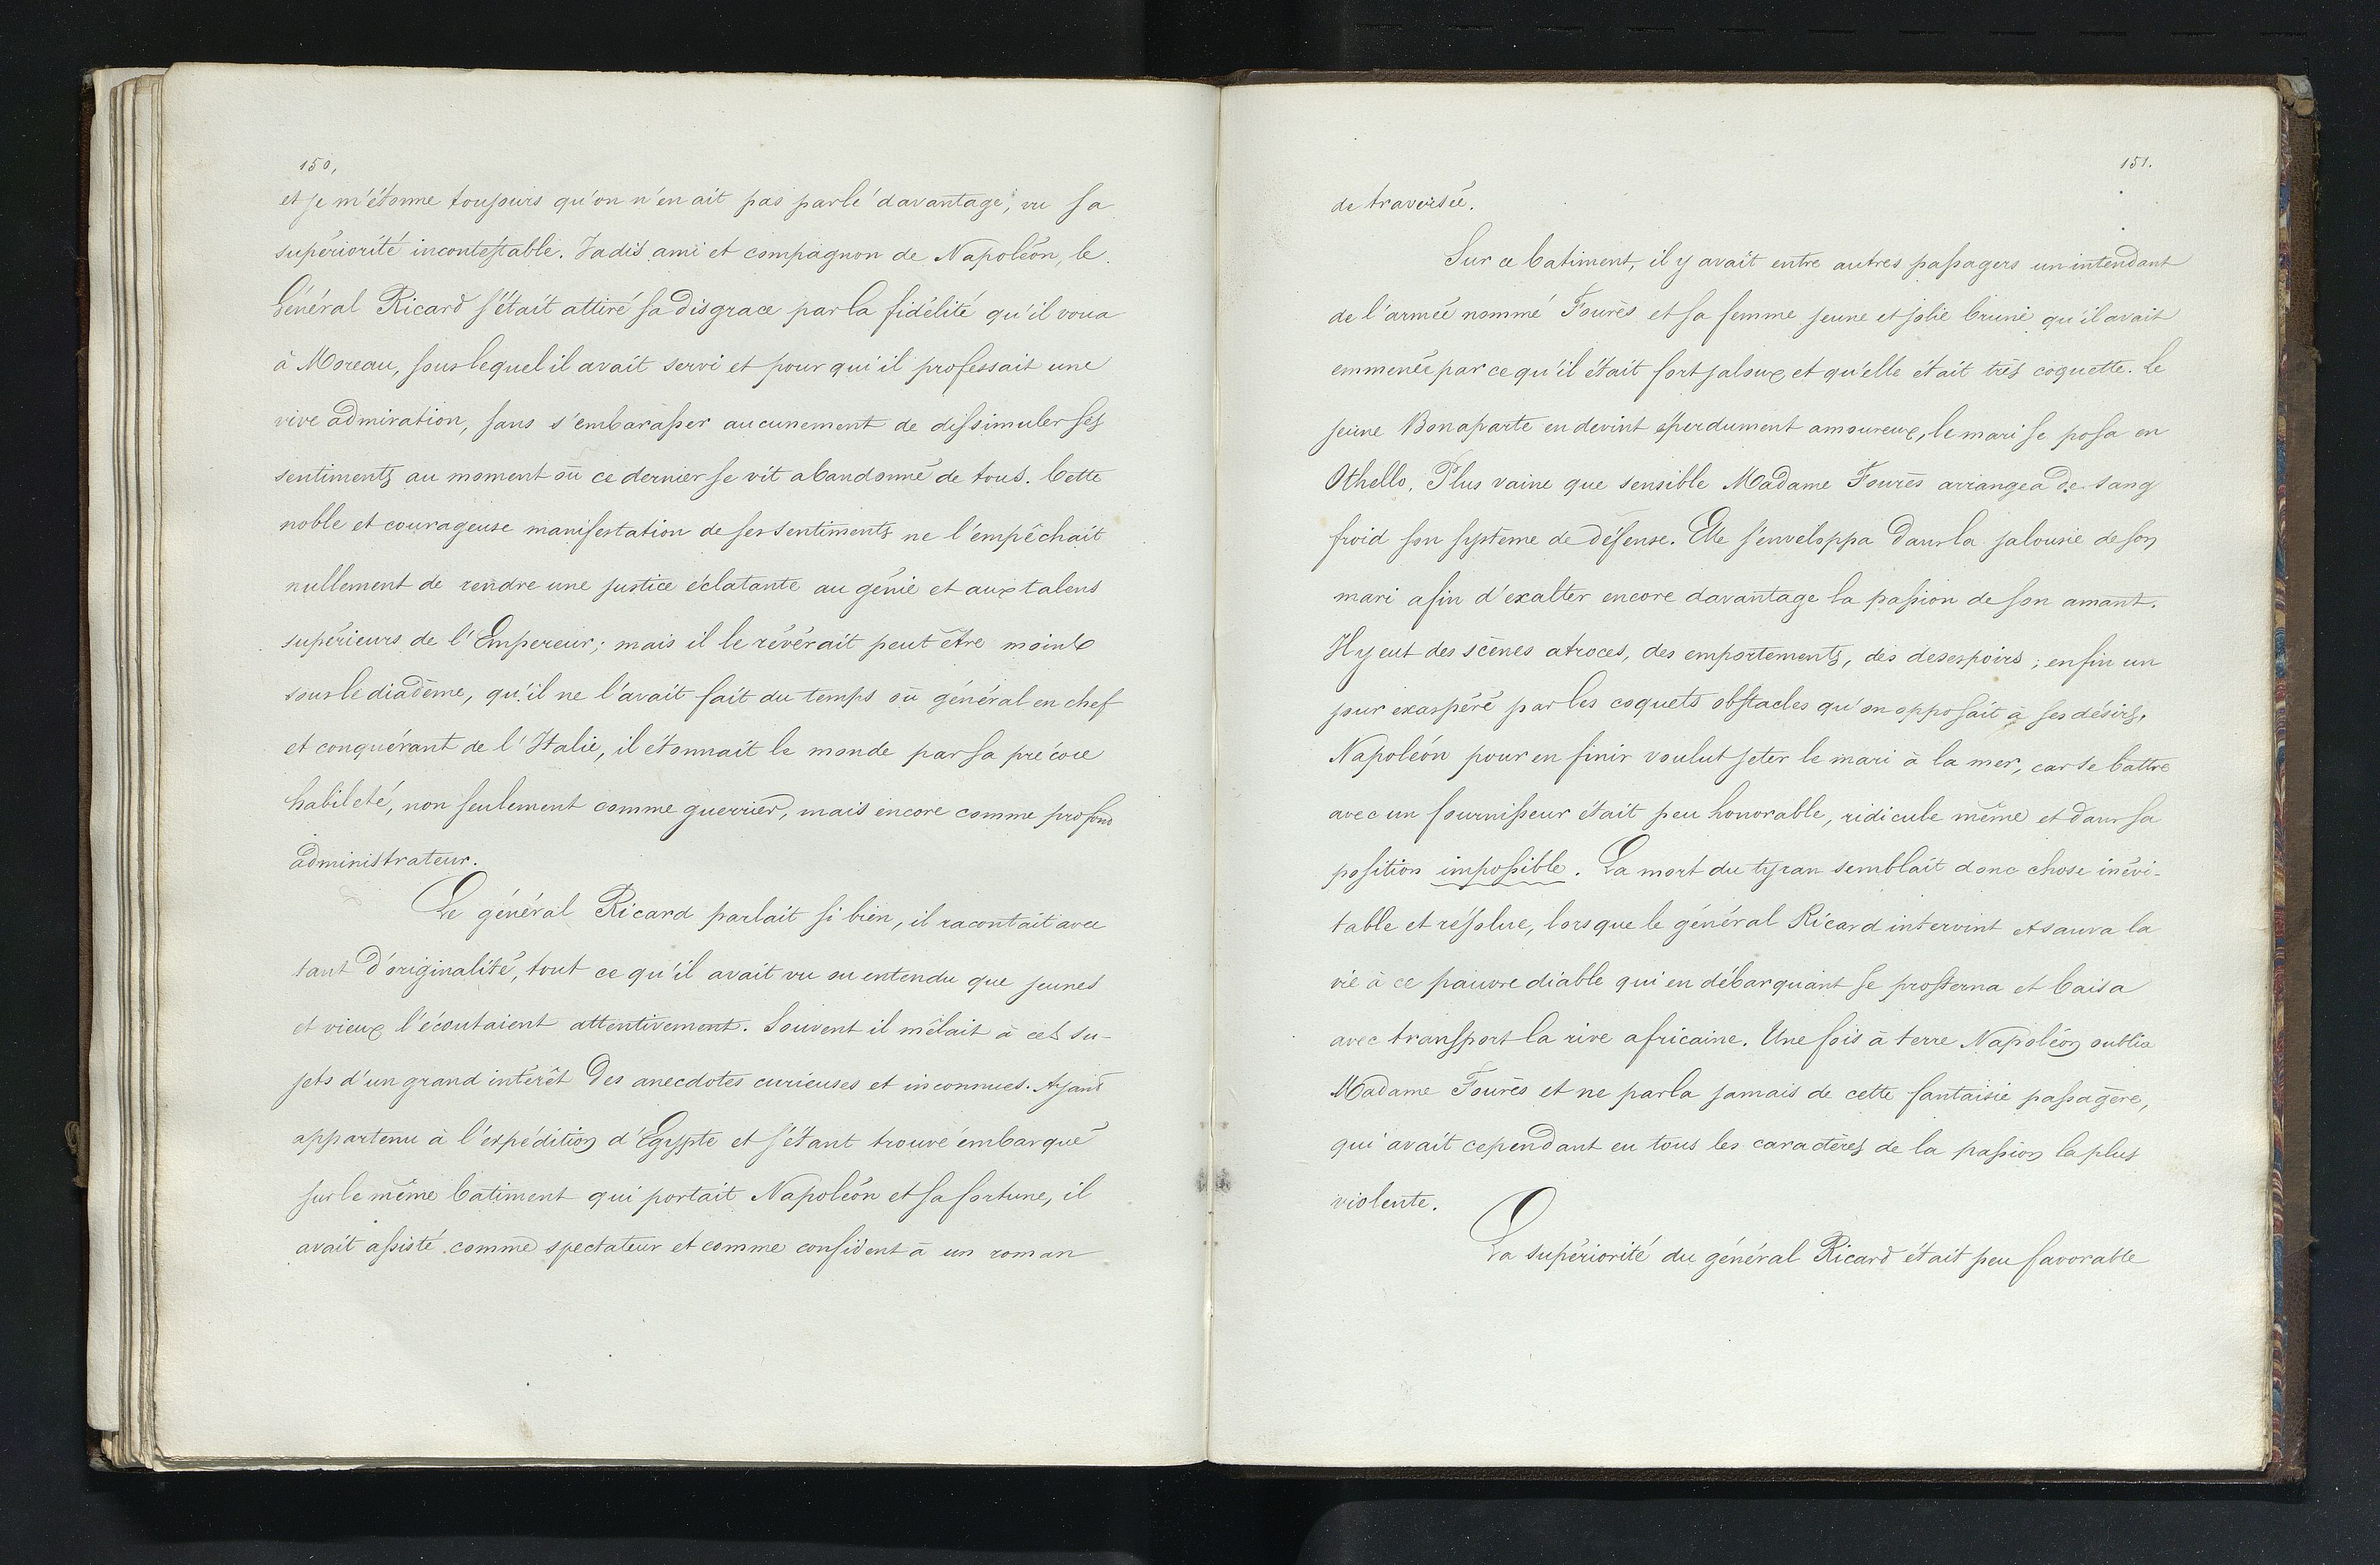 150,
et je m'étonne toujours qu'on n'en ait pas parlé davantage, vu sa
supériorité incontestable. Jadis ami et compagnon de Napoléon, le
Général Ricard s'était attiré sa disgrace par la fidélité qu'il voua
à Moreau, sous lequel il avait servi et pour qui il professait une
vive admiration, sans s'embarasser aucunement de dissimuler ses
sentiments au moment où ce dernier se vit abandonné de tous. Cette
noble et courageuse manifestation de ses sentiments ne l'empêchait
nullement de rendre une justice éclatante au génie et aux talens
supérieurs de l'Empereur; mais il le révérait peut être moins
sous le diadème, qu'il ne l'avait fait du temps où général en chef
et conquérant de l'Italie, il étonnait le monde par sa précoce
habileté, non seulement comme guerrier, mais encore comme profond
administrateur.
Le général Ricard parlait si bien, il racontait avec
tant d'originalité, tout ce qu'il avait vu ou entendu que jeunes
et vieux l'écoutaient attentivement. Souvent il mêlait à ces su-
jets d'un grand intérêt des anecdotes curieuses et inconnues. Ayant
appartenu à l'expédition d'Egypte et s'étant trouvé embarqué
sur le même batiment qui portait Napoléon et sa fortune, il
avait assisté comme spectateur et comme confident à un roman
151.
de traversée.
Sur ce batiment, il y avait entre autres passagers un intendant
de l'armée nommé Fourès et sa femme jeune et jolie brune qu'il avait
emmenée par ce qu'il était fort jaloux et qu'elle était très coquette. Le
jeune Bonaparte en devint éperdument amoureux, le mari se posa en
Othello. Plus vaine que sensible Madame Fourès arrangea de sang
froid son système de défense. Elle s'enveloppa dans la jalousie de son
mari afin d'exalter encore davantage la passion de son amant.
Il y eut des scènes atroces, des emportements, des desespoirs; enfin un
jour exaspéré par les coquets obstacles qu'on opposait à ses désirs,
Napoléon pour en finir voulut jeter le mari à la mer, car se battre
avec un fournisseur était peu honorable, ridicule même et dans sa
position impossible. La mort du tyran semblait donc chose inévi-
table et résolue, lorsque le général Ricard intervint et sauva la
vie à ce pauvre diable qui en débarquant se prosterna et baisa
avec transport la rive africaine. Une fois à terre Napoléon oublia
Madame Fourès et ne parla jamais de cette fantaisie passagère,
qui avait cependant eu tous les caractères de la passion la plus
violente.
La supériorité du général Ricard était peu favorable